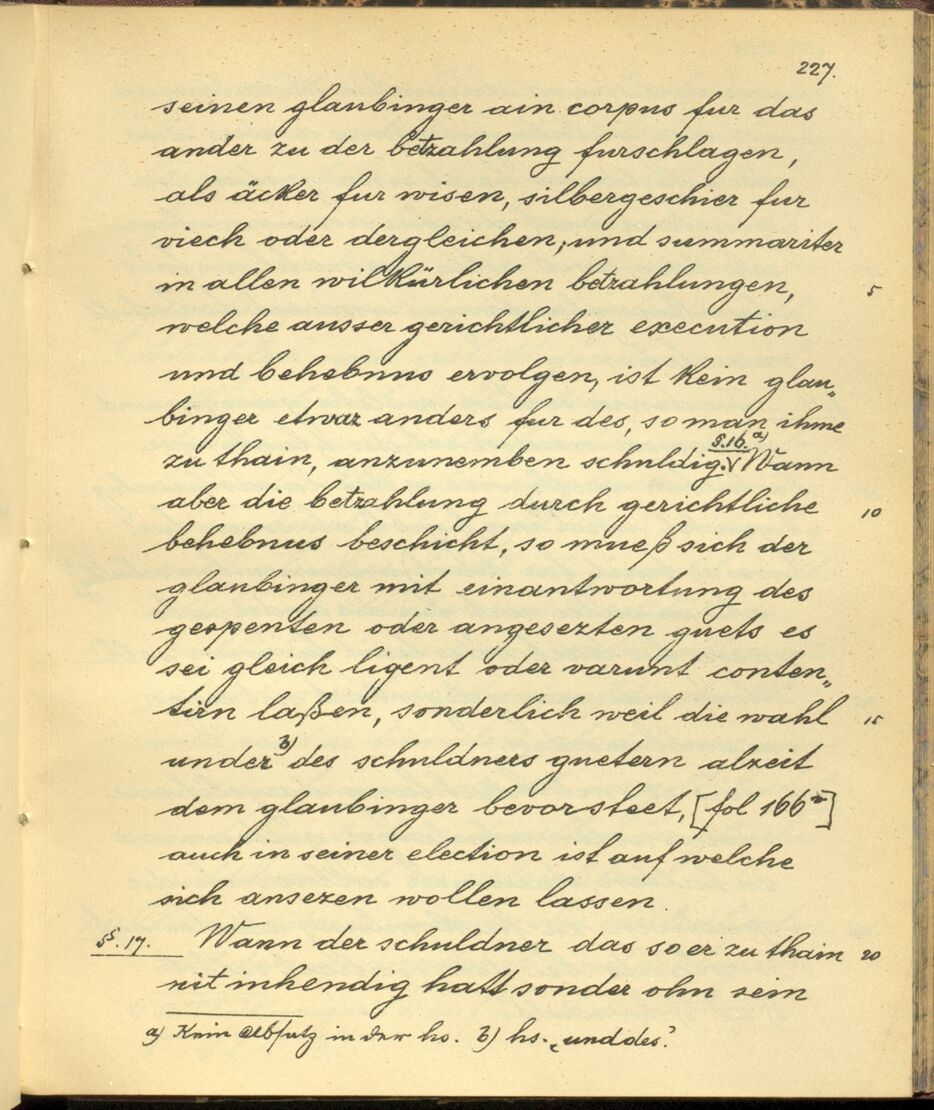 227.
seinen glaubinger ain corpus fur das
ander zu der betzahlung furschlagen,
als äcker fur wisen, silbergeschier fur
viech oder dergleichen, und summariter
in allen wilkürlichen betzahlungen, 5
welche ausser gerichtlicher execution
und behebnus ervolgen, ist kein glau„
binger etwaz anders fur des, so man ihme
zu thain, anzunemben schuldig. §.16. a) Wann
aber die betzahlung durch gerichtliche 10
behebnus beschicht, so mueß sich der
glaubinger mit einantwortung des
gespenten oder angesezten guets es
sei gleich ligent oder varunt conten„
tirn laßen, sonderlich weil die wahl 15
under b) des schuldners guetern alzeit
dem glaubinger bevorsteet, [fol 166 r]
auch in seiner election ist auf welche
sich ansezen wollen lassen.
§. 17. Wann der schuldner das so er zu thain 20
nit inhendig hatt sonder ohn sein
a) Kein Absatz in der hs. b) hs. „und des“.